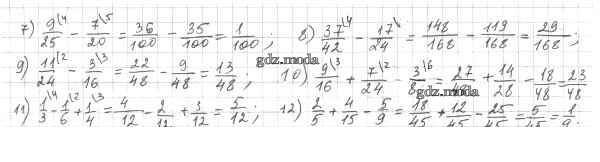 7) 9/25\4 - 7/20\5 = 36/100 - 35/100 = 1/100 ; 8) 37/42\4 - 17/24\ = 148/168 - 119/168 = 29/168 ;
gdz.moda gdz.moda
9) 11/24\2 - 3/16\3 = 22/48 - 9/48 = 13/48 ; 10) 9/16\3 + 7/24\2 - 3/8\6 = 27/48 + 14/28 - 18/48 = 23/48
11) 1/3\4 - 1/6\2 + 1/4\3 = 4/12 - 2/12 + 3/12 = 5/12 ; 12) 2/5 + 4/15 - 5/9 = 18/45 + 12/45 - 25/45 = 5/45 = 1/9 .